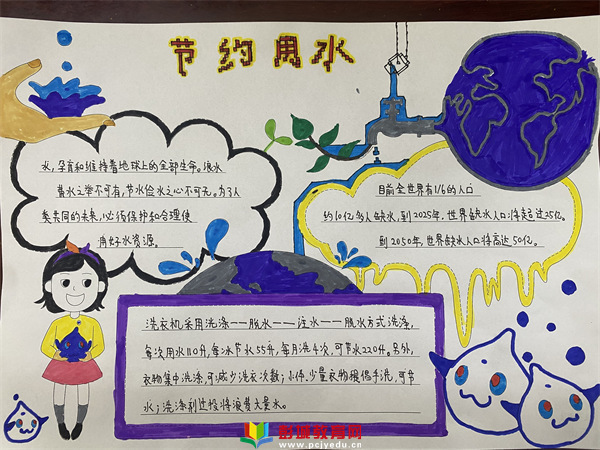 节约用水
水,孕育和维持着地球上的全部生命。浪水
费水之举不可有,节水俭水之心不可无。为了人
类共同的未来,必须保护和合理使
用好水资源。
目前全世界有1/6的人口
约10亿多人缺水,到2025年,世界缺水人口将超过25亿。
到2050年,世界缺水人口将高达50亿。
洗衣机采用洗涤一一脱水一一注水一一脱水方式洗净,
每次用水110升,每次节水55升,每月洗4次,可节水220升。另外,
衣物集中洗涤,可减少洗衣次数;小件、少量衣物提倡手洗,可节
水;洗涤剂过投将浪费大量水。
彭城教育网
www.pcjyedu.cn